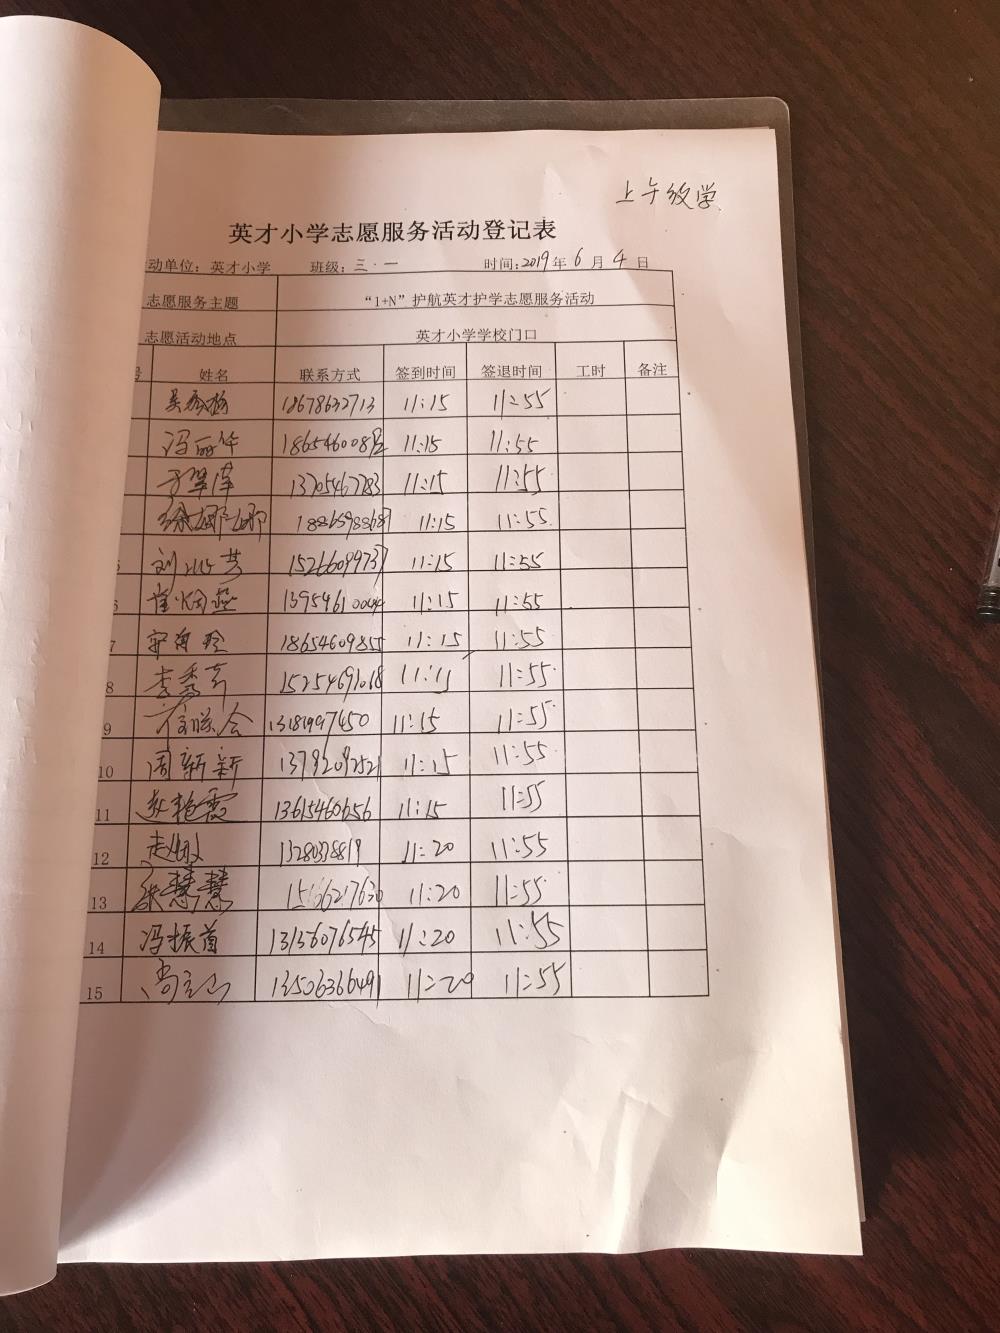 上午放学
英才小学志愿服务活动登记表
动单位：英才小学 班级：三·一 时间：2019年6月4日
志愿服务主题 “1+N”护航英才护学志愿服务活动
志愿活动地点 英才小学学校门口
号 姓名 联系方式 签到时间 签退时间 工时 备注
18678632713 11:15 11:55
冯丽华 11:15 11:55
13705467783 11:15 11:55
徐娜娜 11:15 11:55
15266099737 11:15 11:55
6 13954610044 11:15 11:55
7 18654609855 11:15 11:55
8 李秀芳 15254691018 11:55
9 11:15 11:55
10 周新新 13792092521 11:15 11:55
11 赵艳霞 13615460656 11:15 11:55
12 11:20 11:55
13 张慧慧 11:20 11:55
14 冯振首 13156076545 11:20 11:55
15 13506366491 11:20 11:55